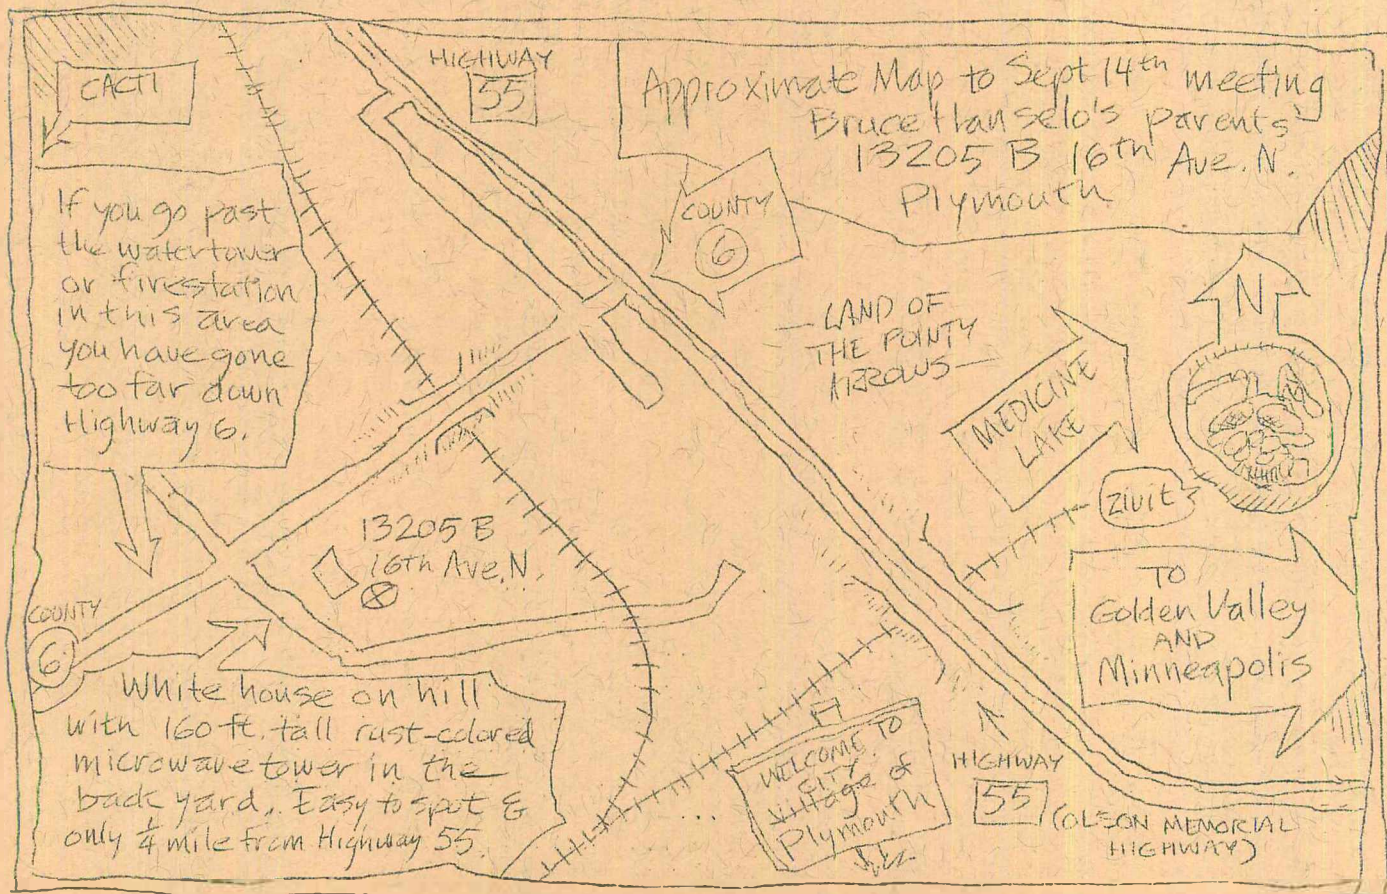 CACTI
HIGHWAY
55
Approximate Map to Sept 14th meeting
Bruce Hanselo's parents'
13205 B 16th Ave. N.
Plymouth
COUNTY
6
If you go past
the watertower
or firestation
in this area
you have gone
too far down
Highway 6.
— LAND OF
THE POINTY
ARROWS —
N
MEDICINE
LAKE
zivit
13205 B
16th Ave. N.
TO
Golden Valley
AND
Minneapolis
COUNTY
6
White house on hill
with 160 ft. tall rust-colored
microwave tower in the
back yard. Easy to spot &
only 1/4 mile from Highway 55.
...
WELCOME TO
CITY
Village of
Plymouth
HIGHWAY
55
(OLSON MEMORIAL
HIGHWAY)